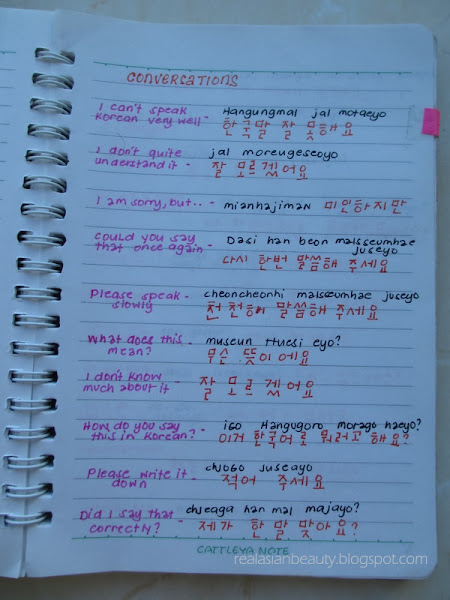 CONVERSATIONS
I can't speak Korean very well - Hangungmal jal motaeyo
한국말 잘 못해요
I don't quite understand it - jal moreugesseoyo
잘 모르겠어요
I am sorry, but.. - mianhajiman 미안하지만
Could you say that once again - Dasi han beon malsseumhae juseyo
다시 한번 말씀해 주세요
Please speak slowly - cheoncheonhi malsseumhae juseyo
천천히 말씀해 주세요
What does this mean? - museun ttuesi eyo?
무슨 뜻이에요
I don't know much about it - 잘 모르겠어요
How do you say this in Korean? - igo Hangugoro morago haeyo?
이거 한국어로 뭐라고 해요?
Please write it down - chogo juseayo
적어 주세요
Did I say that correctly? - chjeaga han mal majayo?
제가 한 말 맞아요?
CATTLEYA NOTE
realasianbeauty.blogspot.com